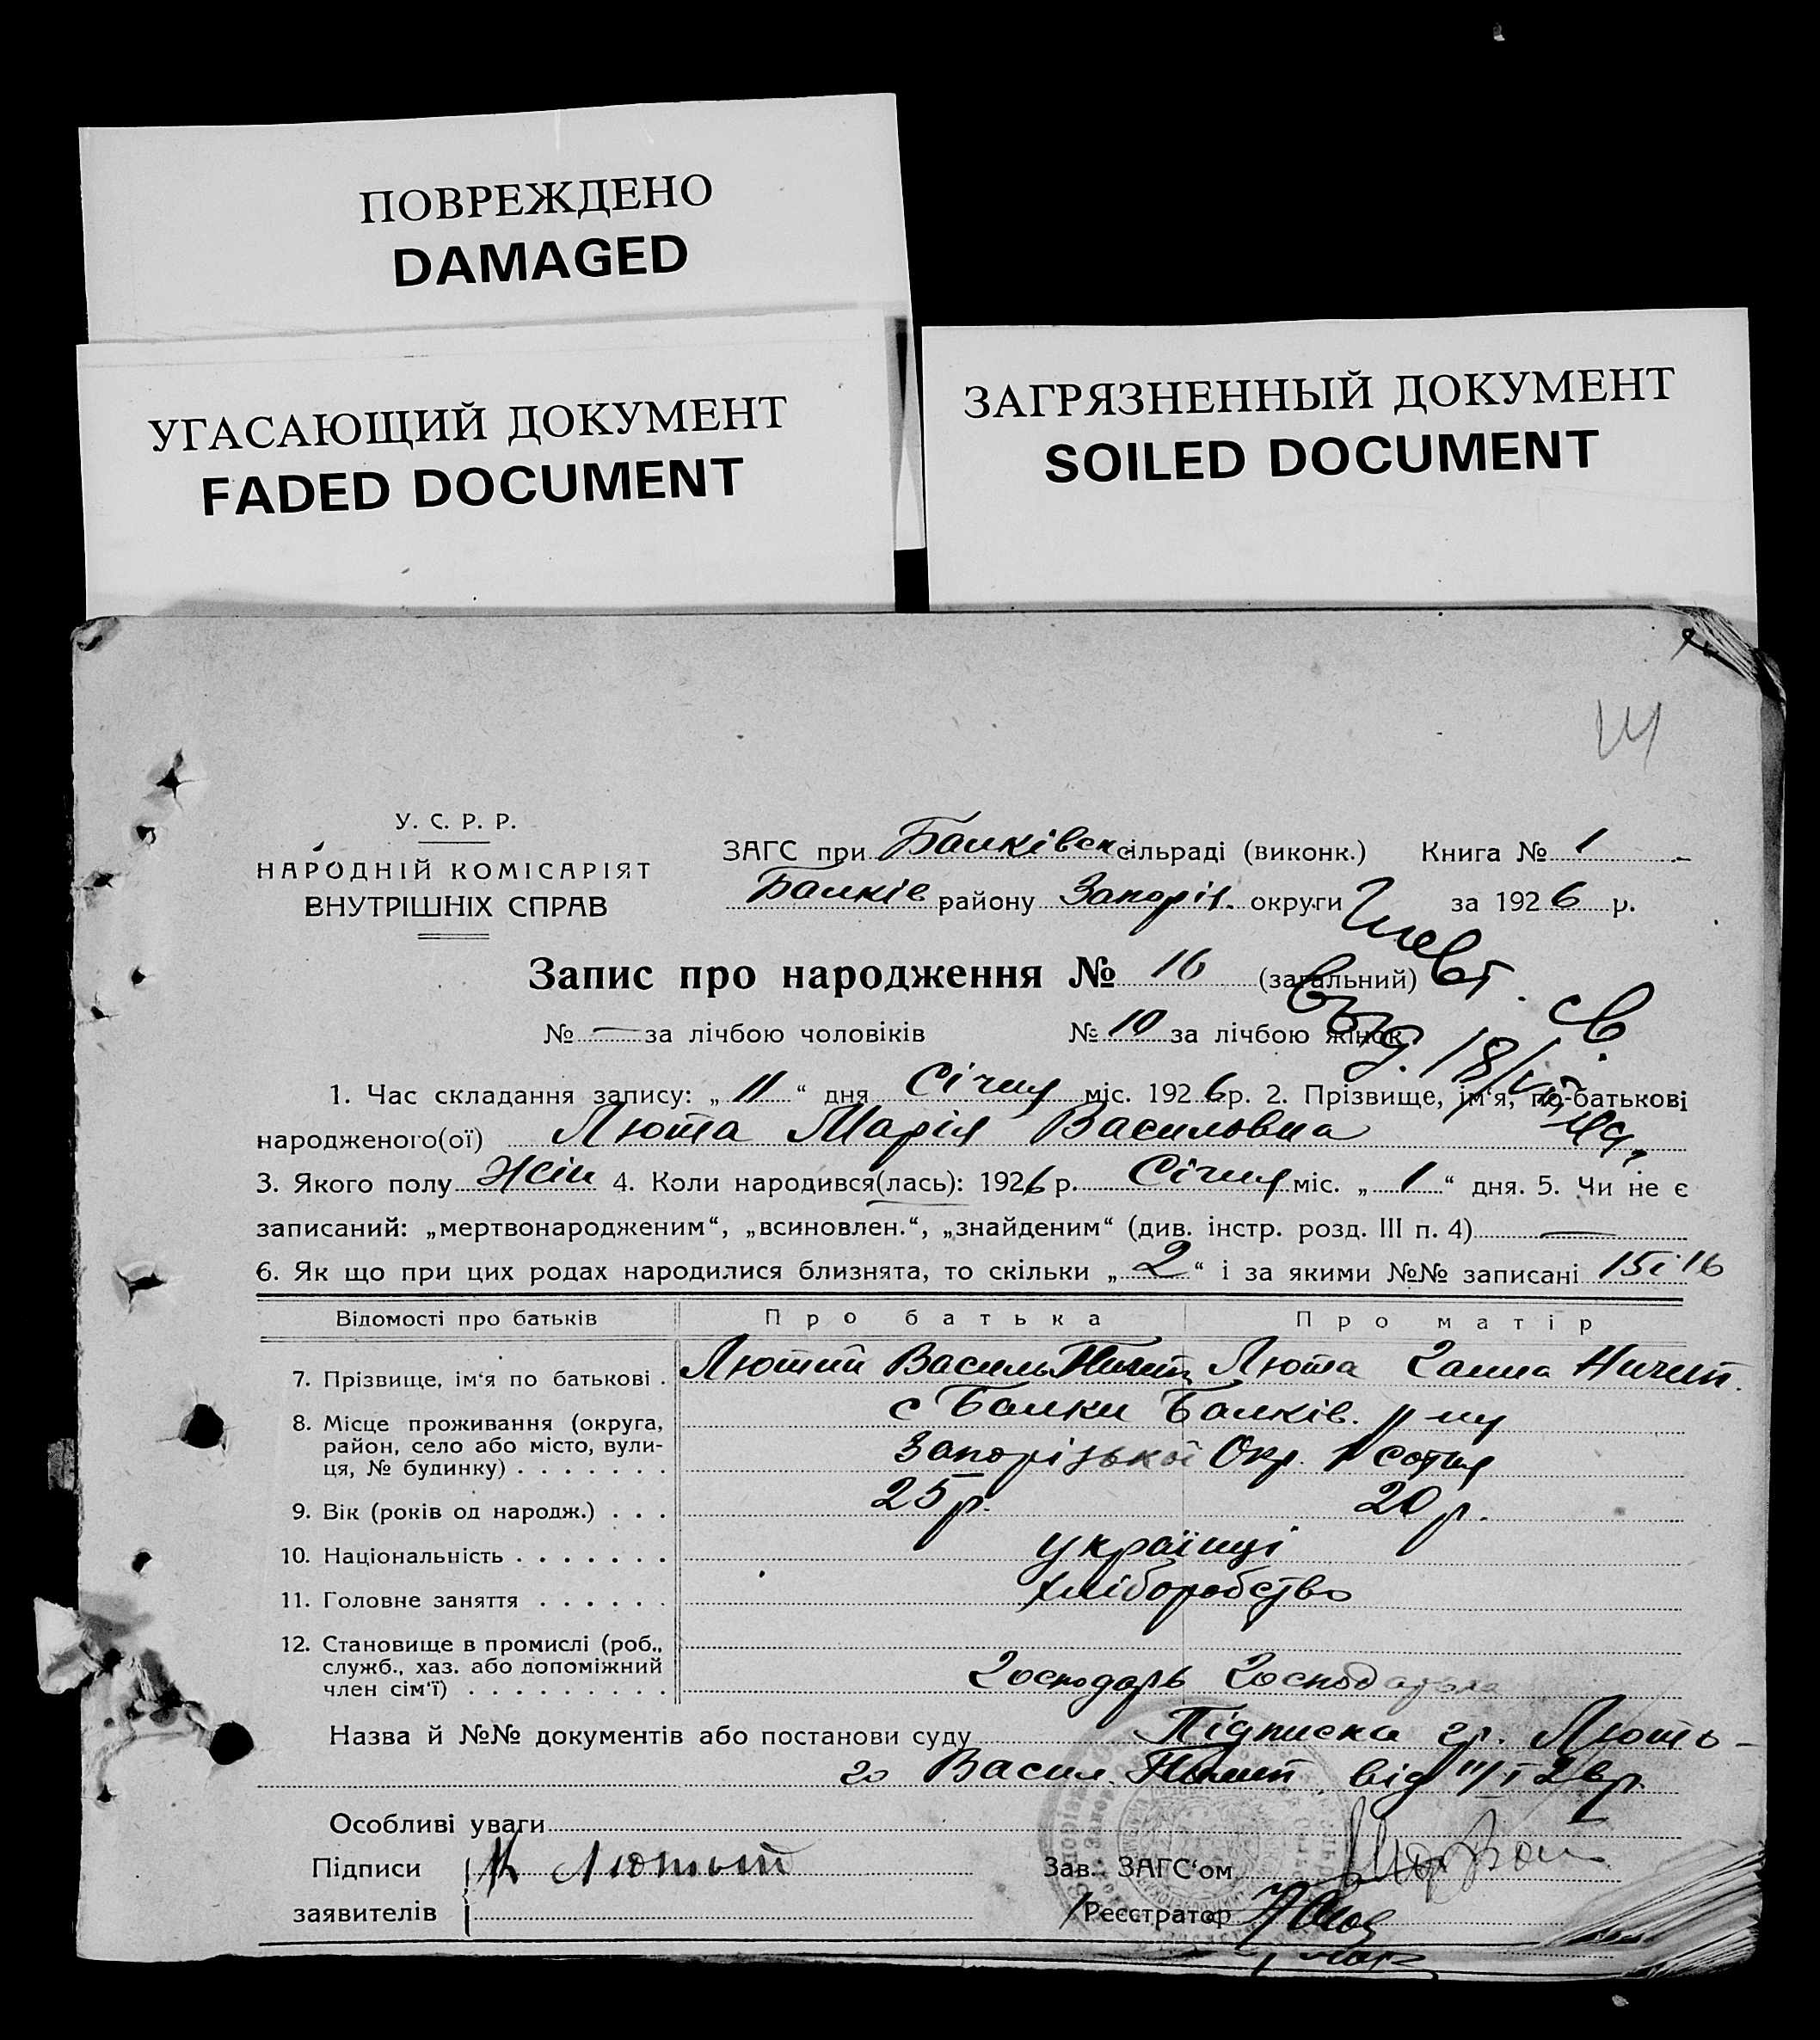 ПОВРЕЖДЕНО
DAMAGED
УГАСАЮЩИЙ ДОКУМЕНТ
FADED DOCUMENT
ЗАГРЯЗНЕННЫЙ ДОКУМЕНТ
SOILED DOCUMENT
У. С. Р. Р.
НАРОДНІЙ КОМІСАРІЯТ
ВНУТРІШНІХ СПРАВ
ЗАГС при Балківск сільраді (виконк.) Книга № 1
Балків району Запоріз. округи за 1926 р.
Запис про народження № 16 (загальний)
№ — за лічбою чоловіків № 10 за лічбою жінок
выд. 18/VII
1. Час складання запису: „ 11 “ дня Січня міс. 1926 р. 2. Прізвище, ім‘я, по-батькові
народженого(ої) Люта Марія Василовна
3. Якого полу Жін 4. Коли народився(лась): 1926 р. Січня міс. „ 1 “ дня. 5. Чи не є
записаний: „мертвонародженим“, „всиновлен.“, „знайденим“ (див. інстр. розд. III п. 4) —
6. Як що при цих родах народилися близнята, то скільки „ 2 “ і за якими №№ записані 15 і 16
Відомості про батьків Про батька Про матір
7. Прізвище, ім‘я по батькові . Лютий Василь Люта Ганна Ничип.
8. Місце проживання (округа, район, село або місто, вули-ця, № будинку) . . . . . . . с Балки Балків.
Запорізької Окр. 1 сотня
9. Вік (років од народж.) . . . 25 р. 20 р.
10. Національність . . . . . . . українці
11. Головне заняття . . . . . . хліборобство
12. Становище в промислі (роб., служб., хаз. або допоміжний член сім‘ї) . . . . . . . . . Господарь Господарька
Назва й №№ документів або постанови суду Підписка гр. Люто-
го Васил. від 11/I 26 р.
Особливі уваги
Підписи Лютый Зав. ЗАГС‘ом
заявителів Реєстратор